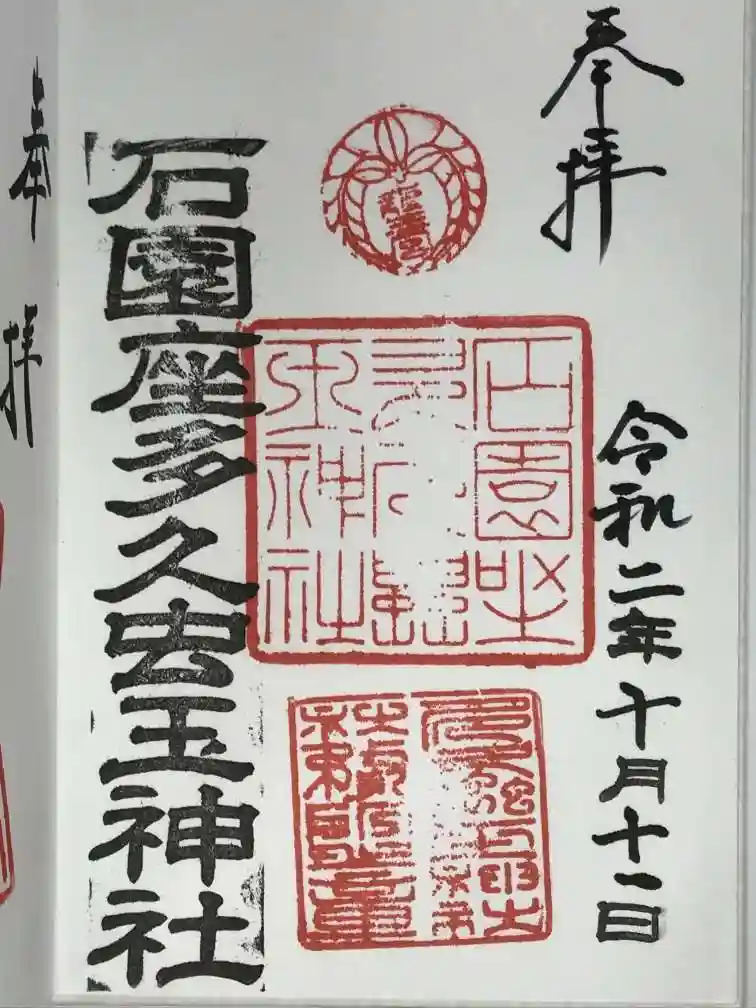 奉拝
令和二年十月十一日
石園坐
多久虫
玉神社
石園座多久虫玉神社
奉拝